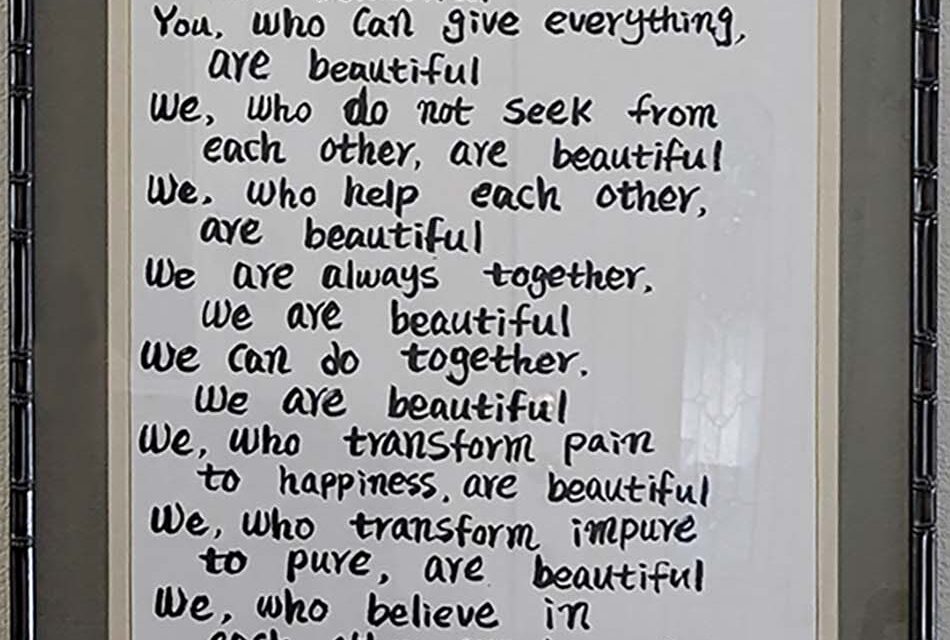 You, who can give everything,
are beautiful
We, who do not seek from
each other, are beautiful
We, who help each other,
are beautiful
We are always together.
We are beautiful
We can do together.
We are beautiful
We, who transform pain
to happiness, are beautiful
We, who transform impure
to pure, are beautiful
We, who believe in